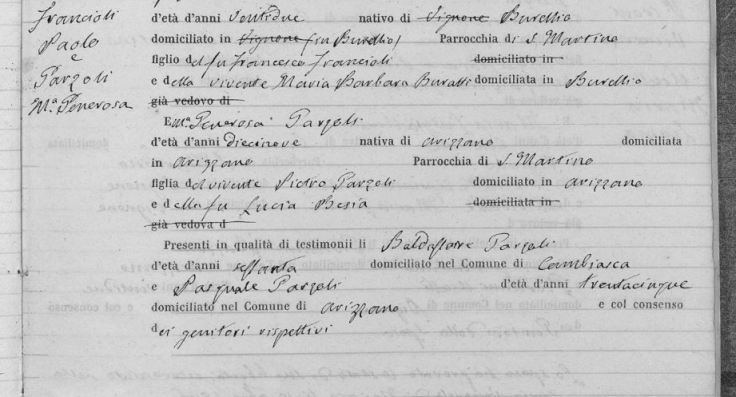 Francioli
Paolo
e
Parzoli
Mª Generosa
d'età d'anni ventidue nativo di Vignone Bureglio
domiciliato in Vignone (in Bureglio) Parrocchia di S. Martino
figlio del fu Francesco Francioli domiciliato in
e della vivente Maria Barbara Buratti domiciliata in Bureglio
già vedovo di
E Mª Generosa Parzoli
d'età d'anni diecinove nativa di Arizzano domiciliata
in Arizzano Parrocchia di S. Martino
figlia del vivente Pietro Parzoli domiciliato in Arizzano
e della fu Lucia Besia domiciliata in
già vedova d
Presenti in qualità di testimonii li Baldassare Parzoli
d'età d'anni sessanta domiciliato nel Comune di Cambiasca
e Pasquale Parzoli d'età d'anni trentacinque
domiciliato nel Comune di Arizzano e col consenso
dei genitori rispettivi